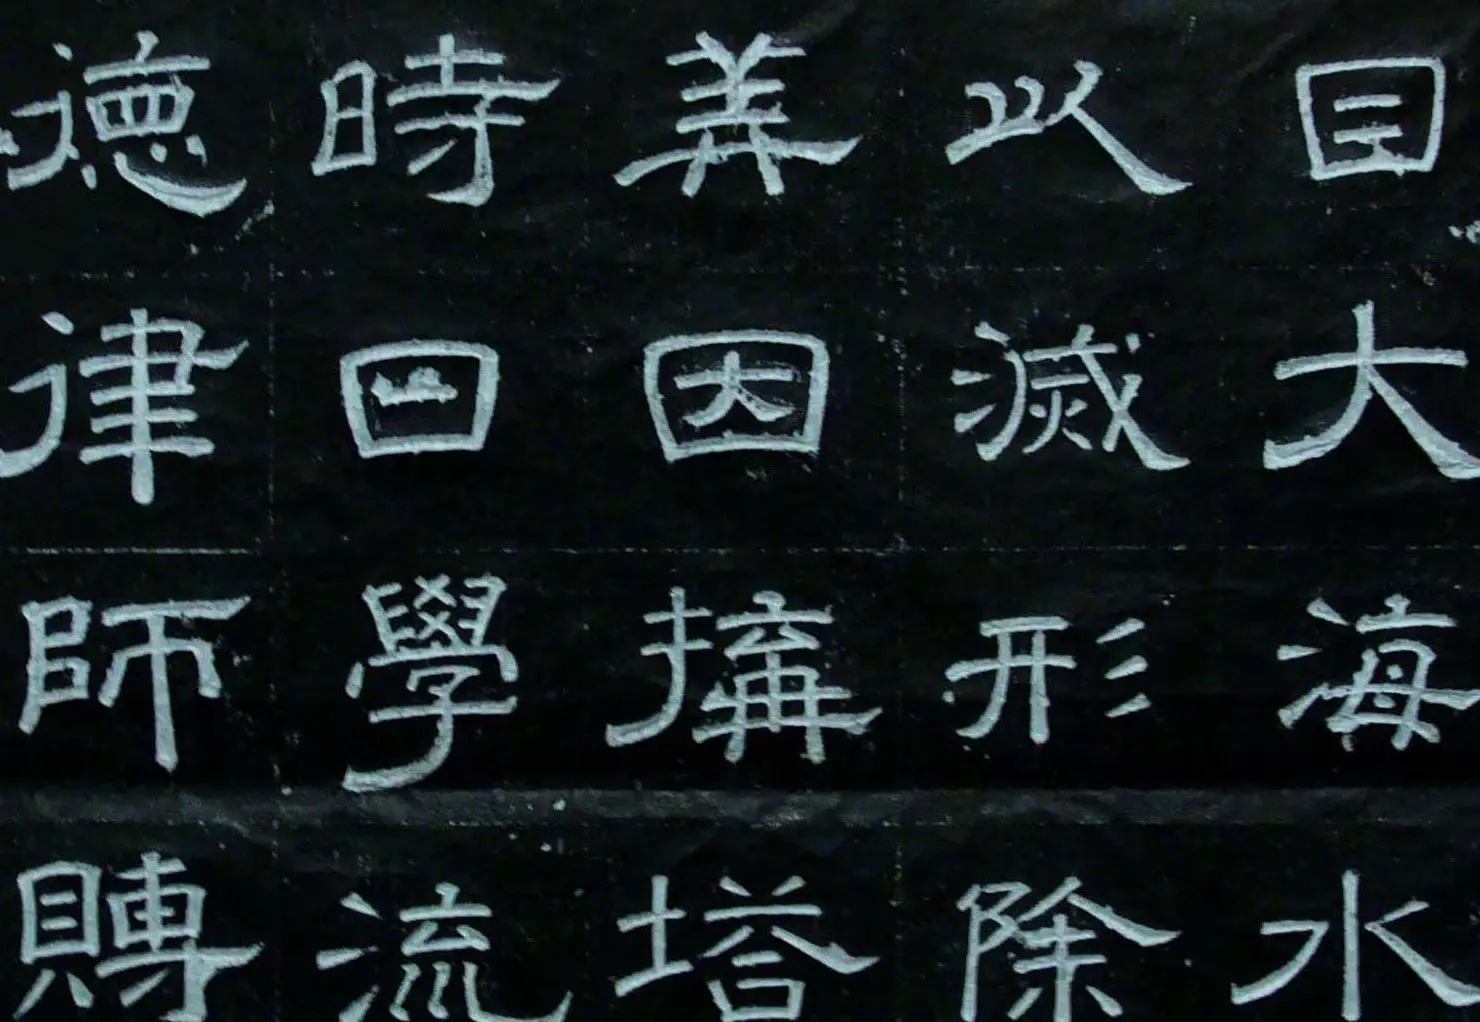 目大海水
以滅形除
美因搆塔
時曰學流
德律師賻